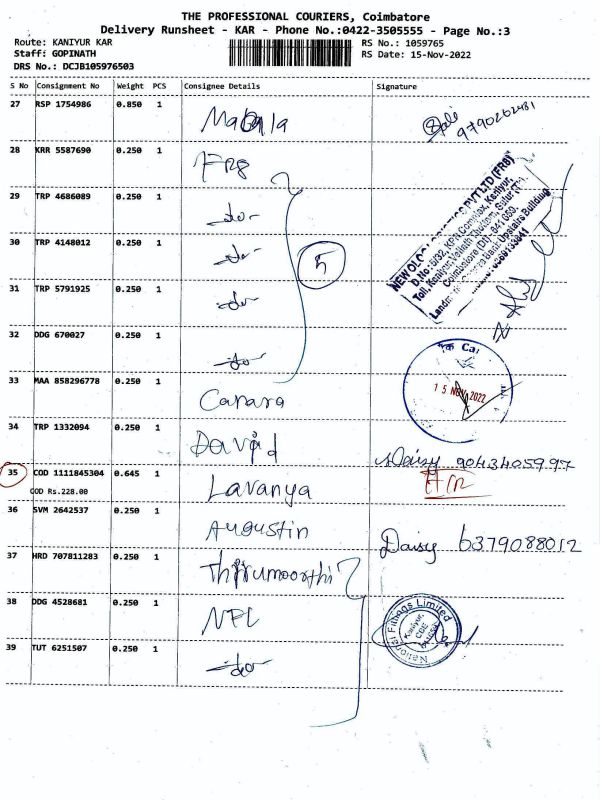 THE PROFESSIONAL COURIERS, Coimbatore
Delivery Runsheet - KAR - Phone No.:0422-3505555 - Page No.:3
Route: KANIYUR KAR
RS No.: 1059765
Staff: GOPINATH
RS Date: 15-Nov-2022
DRS No.: DCJB105976503
S No Consignment No Weight PCS Consignee Details Signature
27 RSP 1754986 0.850 1 Mabala
9790262481
28 KRR 5587690 0.250 1 FR8
29 TRP 4686089 0.250 1 -do-
30 TRP 4148012 0.250 1 -do-
5
31 TRP 5791925 0.250 1 -do-
32 DDG 670027 0.250 1 -do-
NEW OLOGISTICS PVT LTD (FR8)
D.No.:5/32, KPN Complex, Kaniyur,
33 MAA 858296778 0.250 1 Canara
15 NOV 2022
34 TRP 1332094 0.250 1 David
Daisy 9043405997
35 COD 1111845304 0.645 1 Lavanya
COD Rs.228.00
36 SVM 2642537 0.250 1 Augustin
Daisy 6379088012
37 HRD 707811283 0.250 1 Thirumoorthi
38 DDG 4528681 0.250 1 NFL
National Fittings Limited
Kaniyur,
CBE
39 TUT 6251507 0.250 1 -do-